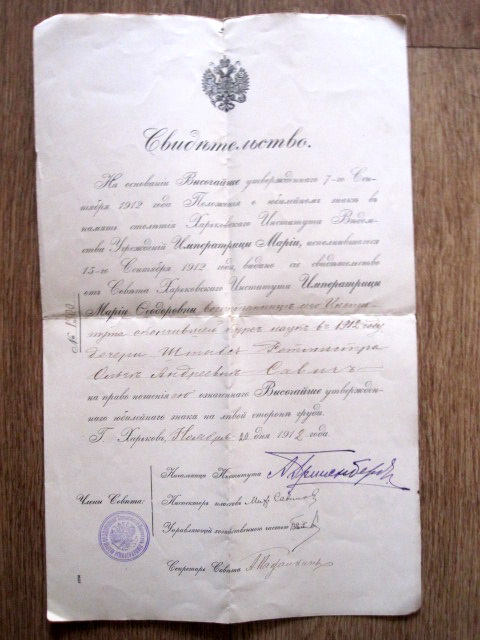 Свидѣтельство.
На основаніи Высочайше утвержденнаго 7-го Сен-
тября 1912 года Положенія о юбилейномъ знакѣ въ
память столѣтія Харьковскаго Института Вѣдом-
ства Учрежденій Императрицы Маріи, исполнившагося
15-го Сентября 1912 года, выдано сіе свидѣтельство
отъ Совѣта Харьковскаго Института Императрицы
Маріи Ѳеодоровны воспитанницѣ его Инсти-
тута окончившей курсъ наукъ въ 1912 году
дочери Штабсъ Ротмистра
Ольгѣ Андреевнѣ Савичъ
на право ношенія означеннаго Высочайше утвержден-
наго юбилейнаго знака на лѣвой сторонѣ груди.
Г. Харьковъ, Ноября 20 дня 1912 года.
№ 1300
Начальница Института
Члены Совѣта:
Инспекторъ классовъ
Управляющій хозяйственной частью
Секретарь Совѣта